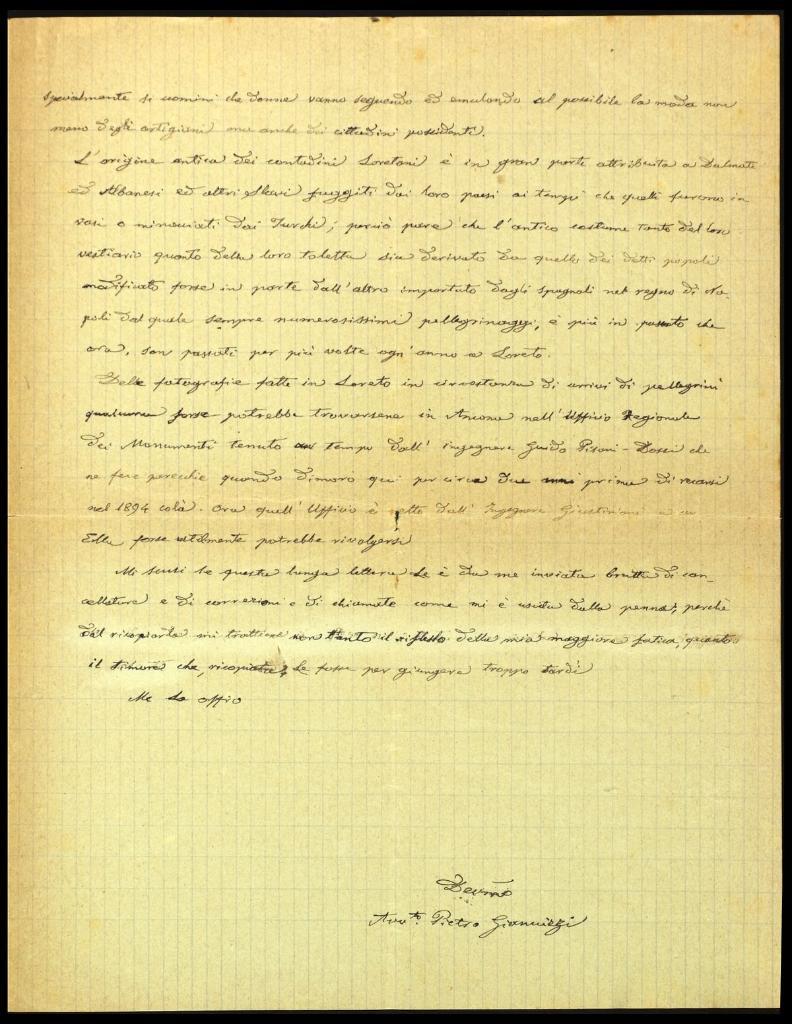 specialmente sì uomini che donne vanno seguendo ed emulando al possibile la moda non
meno degli artigiani ma anche dei cittadini possidenti.
L'origine antica dei contadini Loretani è in gran parte attribuita a Dalmati
ed Albanesi ed altri Slavi fuggiti dai loro paesi ai tempi che quelli furono in
vasi o minacciati dai Turchi; perciò pare che l'antico costume tanto del loro
vestiario quanto della loro toletta sia derivato da quello dei detti popoli
modificato forse in parte dall'altro importato dagli spagnoli nel regno di Na-
poli dal quale sempre numerosissimi pellegrinaggi, e più in passato che
ora, son passati per più volte ogn'anno a Loreto.
Delle fotografie fatte in Loreto in circostanza di arrivi di pellegrini
qualcuna forse potrebbe trovarsene in Ancona nell'Ufficio Regionale
dei Monumenti tenuto un tempo dall'ingegnere Guido Pisani-Dossi che
ne fece parecchie quando dimorò qui per circa due anni prima di recarsi
nel 1894 colà. Ora quell'Ufficio è retto dall'Ingegnere Giustiniani a cui
Ella forse utilmente potrebbe rivolgersi
Mi scusi se questa lunga lettera Le è da me inviata brutta di can-
cellature e di correzioni e di chiamate come mi è uscita dalla penna; perchè
dal ricopiarla mi trattiene non tanto il riflesso della mia maggiore fatica, quanto
il timore che, ricopiata, Le fosse per giungere troppo tardi
Me Le offro
Devmo
Avvto. Pietro Gianuizzi